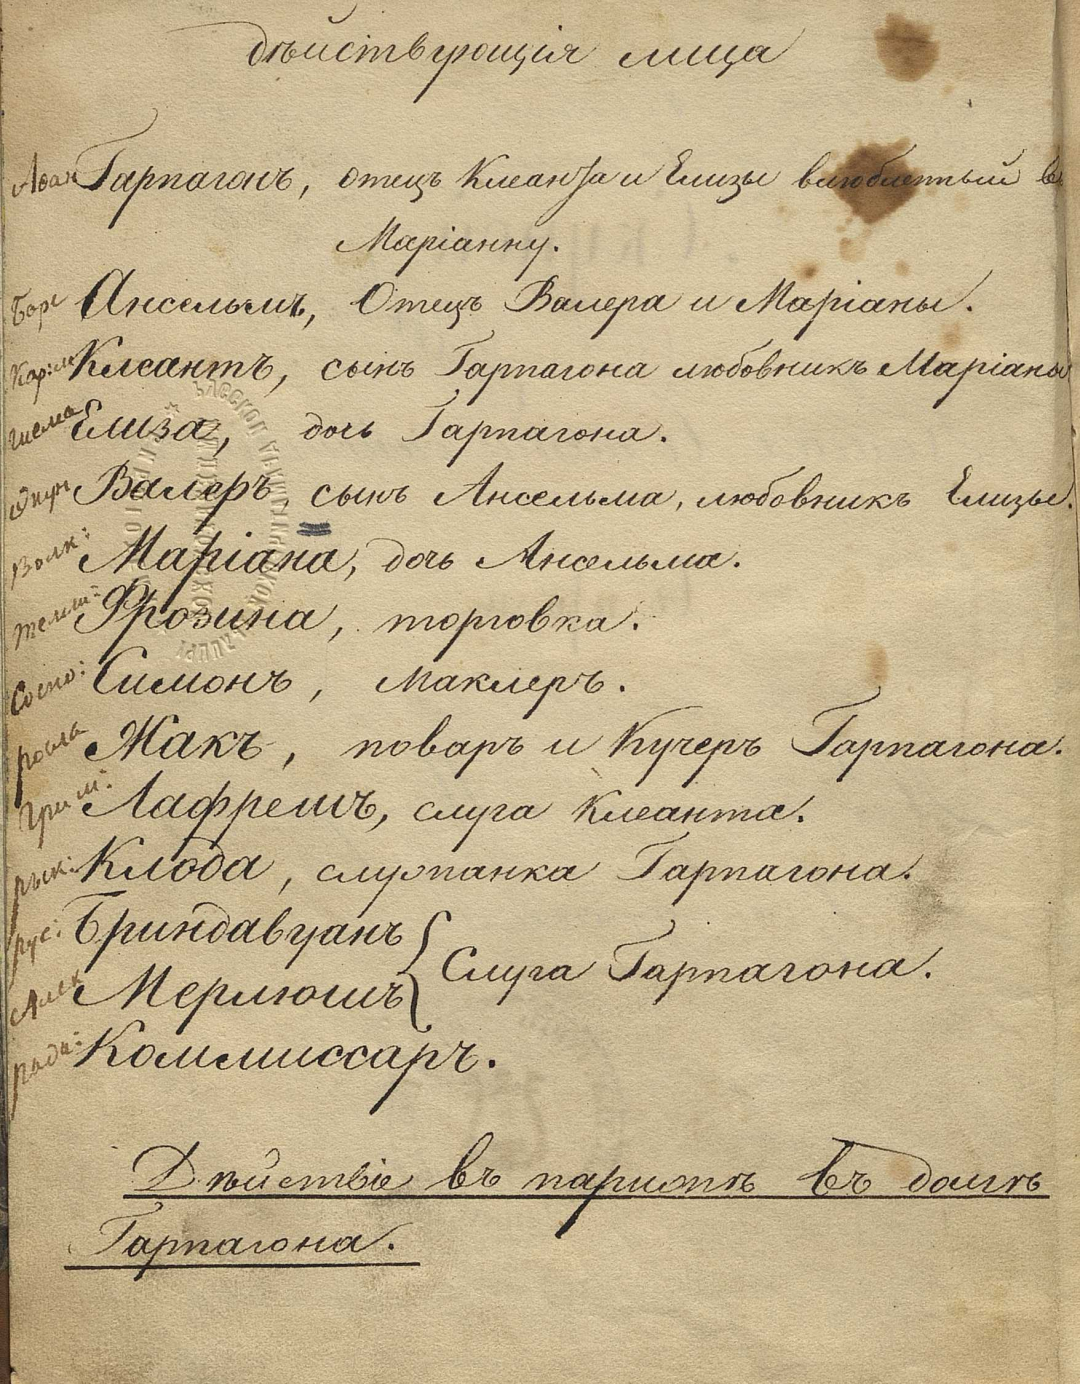 дѣйствующія лица
Гарпагонъ, отецъ Клеанта и Елизы влюбленный в
Маріанну.
Бор Ансельмъ, Отецъ Валера и Маріаны.
Клеантъ, сынъ Гарпагона любовникъ Маріаны
Елиза, дочь Гарпагона.
Валеръ сынъ Ансельма, любовникъ Елизы.
Волк: Маріана, дочь Ансельма.
Фрозина, торговка.
Сосно: Симонъ, Маклеръ.
Жакъ, поваръ и Кучеръ Гарпагона.
Грим: Лафлешъ, слуга Клеанта.
рык: Клода, служанка Гарпагона.
рус: Бриндавуанъ
Слуга Гарпагона.
Алек Мерлюшъ
Коммиссаръ.
Дѣйствіе въ парижѣ въ домѣ
Гарпагона.